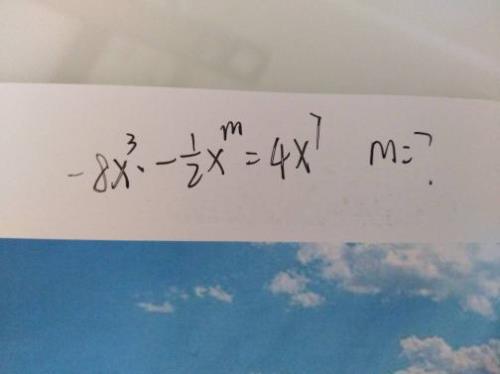 -8x³·-½x^m=4x⁷ m=?